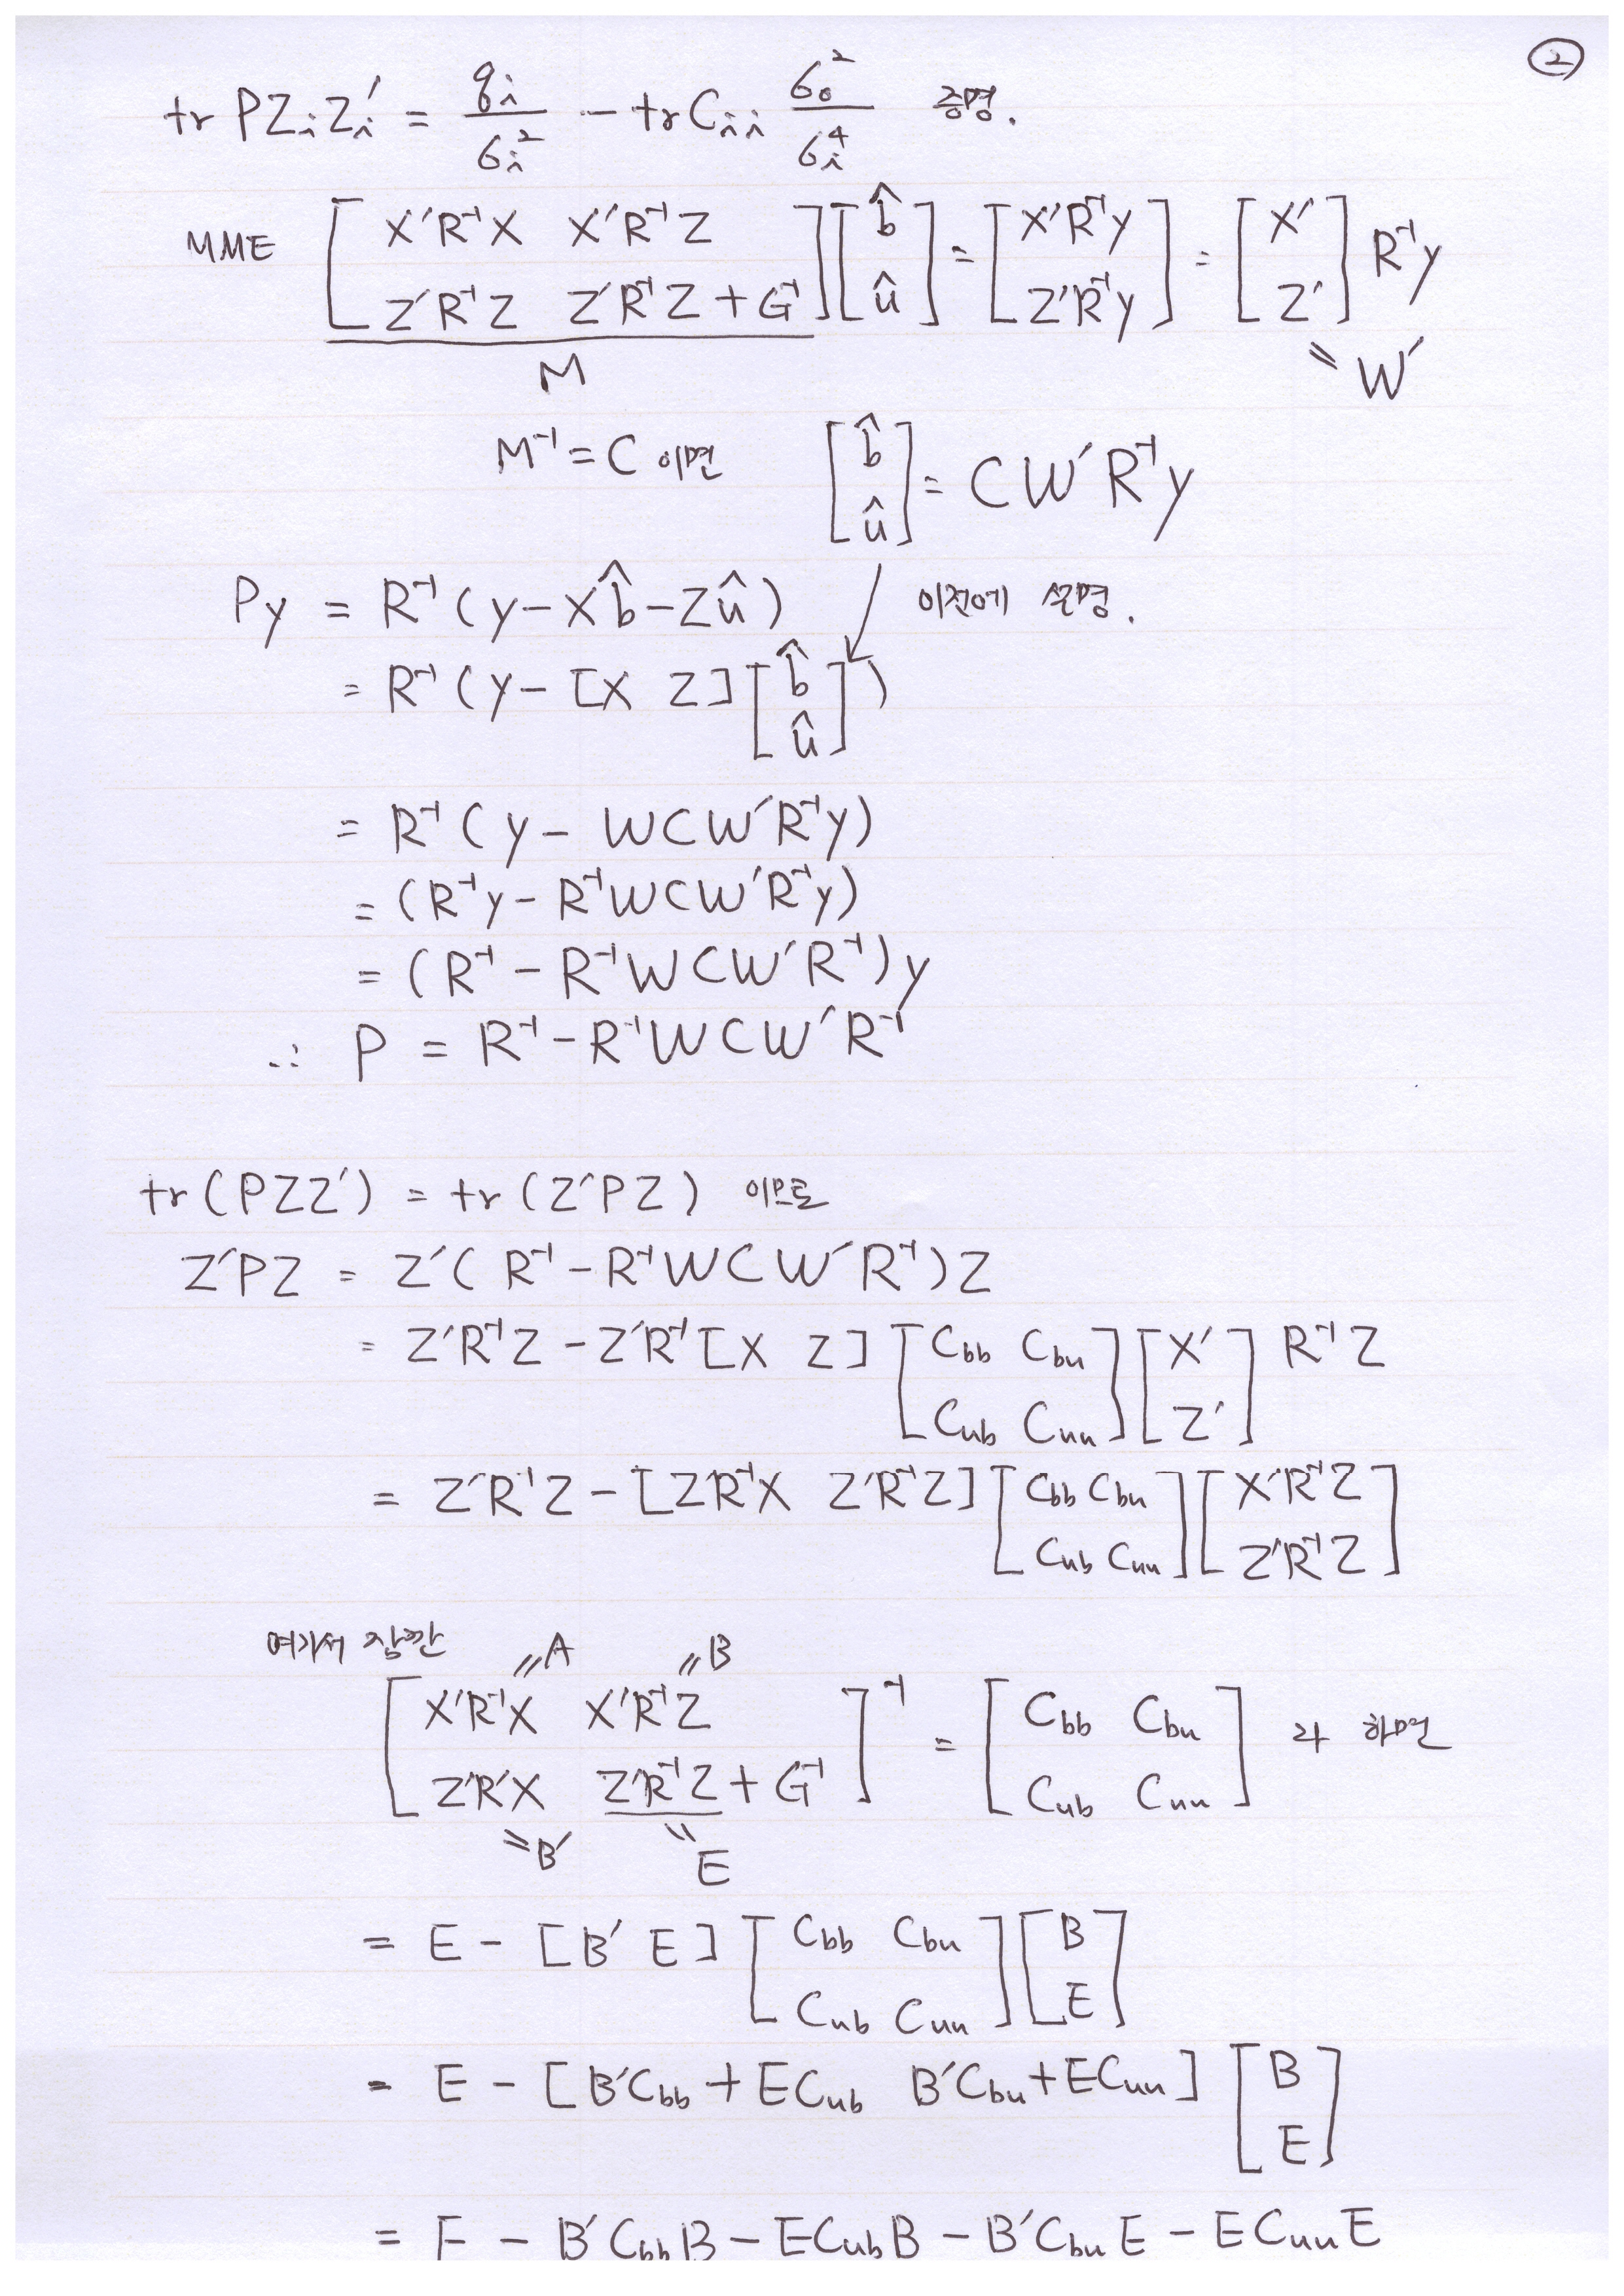 ②
tr PZᵢZᵢ′ = qᵢ/σᵢ² − trCᵢᵢ σ₀²/σᵢ⁴ 증명.
MME [X′R⁻¹X X′R⁻¹Z; Z′R⁻¹Z Z′R⁻¹Z + G⁻¹] [b̂; û] = [X′R⁻¹y; Z′R⁻¹y] = [X′; Z′] R⁻¹y
M = W′
M⁻¹ = C 이면 [b̂; û] = CW′R⁻¹y
Py = R⁻¹(y − Xb̂ − Zû) 이전에 설명.
= R⁻¹(y − [X Z][b̂; û])
= R⁻¹(y − WCW′R⁻¹y)
= (R⁻¹y − R⁻¹WCW′R⁻¹y)
= (R⁻¹ − R⁻¹WCW′R⁻¹)y
∴ P = R⁻¹ − R⁻¹WCW′R⁻¹
tr(PZZ′) = tr(Z′PZ) 이므로
Z′PZ = Z′(R⁻¹ − R⁻¹WCW′R⁻¹)Z
= Z′R⁻¹Z − Z′R⁻¹[X Z][Cbb Cbu; Cub Cuu][X′; Z′] R⁻¹Z
= Z′R⁻¹Z − [Z′R⁻¹X Z′R⁻¹Z][Cbb Cbu; Cub Cuu][X′R⁻¹Z; Z′R⁻¹Z]
여기서 잠깐 =A =B
[X′R⁻¹X X′R⁻¹Z; Z′R⁻¹X Z′R⁻¹Z + G⁻¹]⁻¹ = [Cbb Cbu; Cub Cuu] 라 하면
=B′ =E
= E − [B′ E][Cbb Cbu; Cub Cuu][B; E]
= E − [B′Cbb + ECub B′Cbu + ECuu][B; E]
= E − B′CbbB − ECubB − B′CbuE − ECuuE